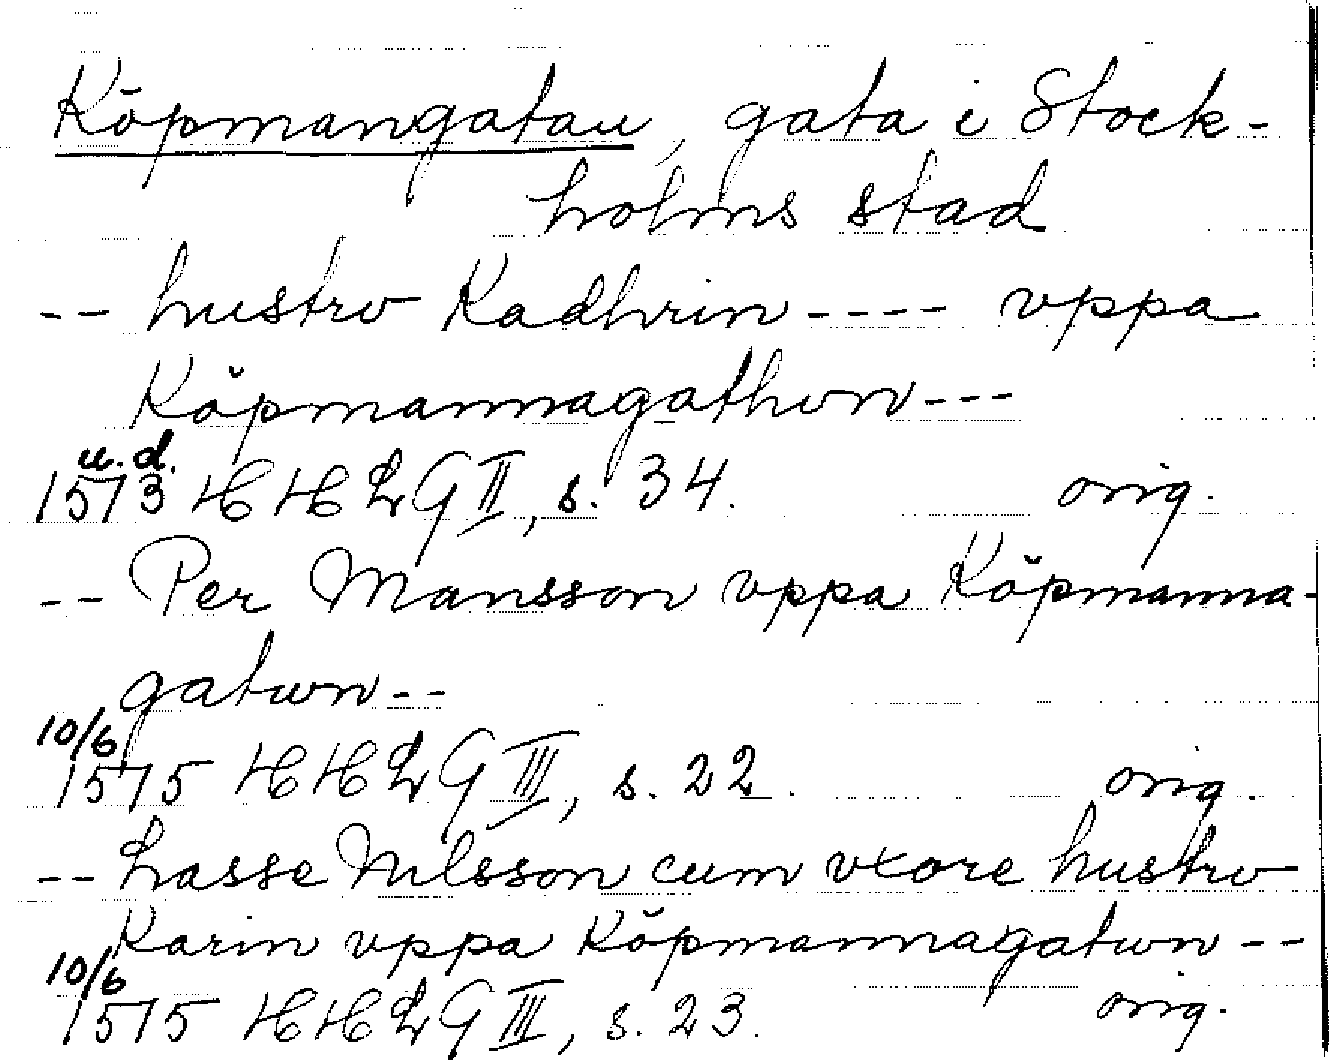 Köpmangatan, gata i Stock-
holms stad
-- hustrv Kadhrin ---- vppa
Köpmannagathvn ---
u.d.
1573 HHLG II, s. 34. orig.
-- Per Mansson vppa Köpmanna-
gatwn --
10/6
1575 HHLG III, s. 22. orig.
-- Lasse Nilsson cum vxore hustrv
Karin vppa Köpmannagatwn --
10/6
1575 HHLG III, s. 23. orig.